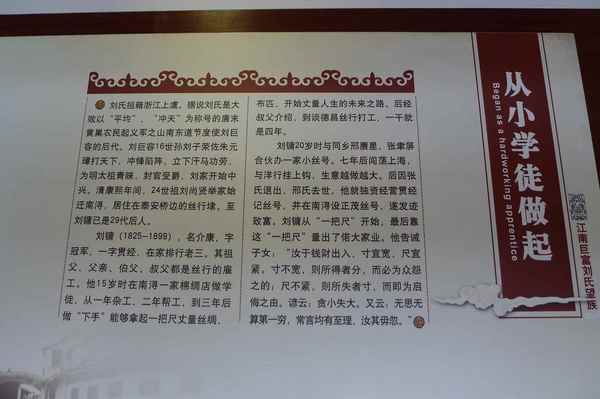 从小学徒做起
Began as a hardworking apprentice
江南巨富刘氏望族
刘氏祖籍浙江上虞，据说刘氏是大
败以“平均”、“冲天”为称号的唐末
黄巢农民起义军之山南东道节度使刘巨
容的后代。刘巨容16世孙刘子荣佐朱元
璋打天下，冲锋陷阵，立下汗马功劳，
为明太祖青睐，封官受爵，刘家开始中
兴。清康熙年间，24世祖刘尚贤举家始
迁南浔，居住在泰安桥边的丝行埭。至
刘镛已是29代后人。
刘镛（1825-1899），名介康，字
冠军，一字贯经，在家排行老三。其祖
父、父亲、伯父、叔父都是丝行的雇
工。他15岁时在南浔一家棉绸店做学
徒，从一年杂工、二年帮工，到三年后
做“下手”能够拿起一把尺丈量丝绸、
布匹，开始丈量人生的未来之路。后经
叔父介绍，到谈德昌丝行打工，一干就
是四年。
刘镛20岁时与同乡邢赓星、张聿
合伙办一家小丝号。七年后闯荡上海，
与洋行挂上钩，生意越做越大。后因张
氏退出，邢氏去世，他就独资经营贯经
记丝号，并在南浔设正茂丝号，遂发迹
致富。刘镛从“一把尺”开始，最后靠
这“一把尺”量出了偌大家业。他告诫
子女：“汝于钱财出入，寸宜宽，尺宜
紧。寸不宽，则所得者分，而必为众怨
之的；尺不紧，则所失者寸，而即为启
侮之由。谚云：贪小失大。又云：无思无
算第一穷，常言均有至理，汝其毋忽。”